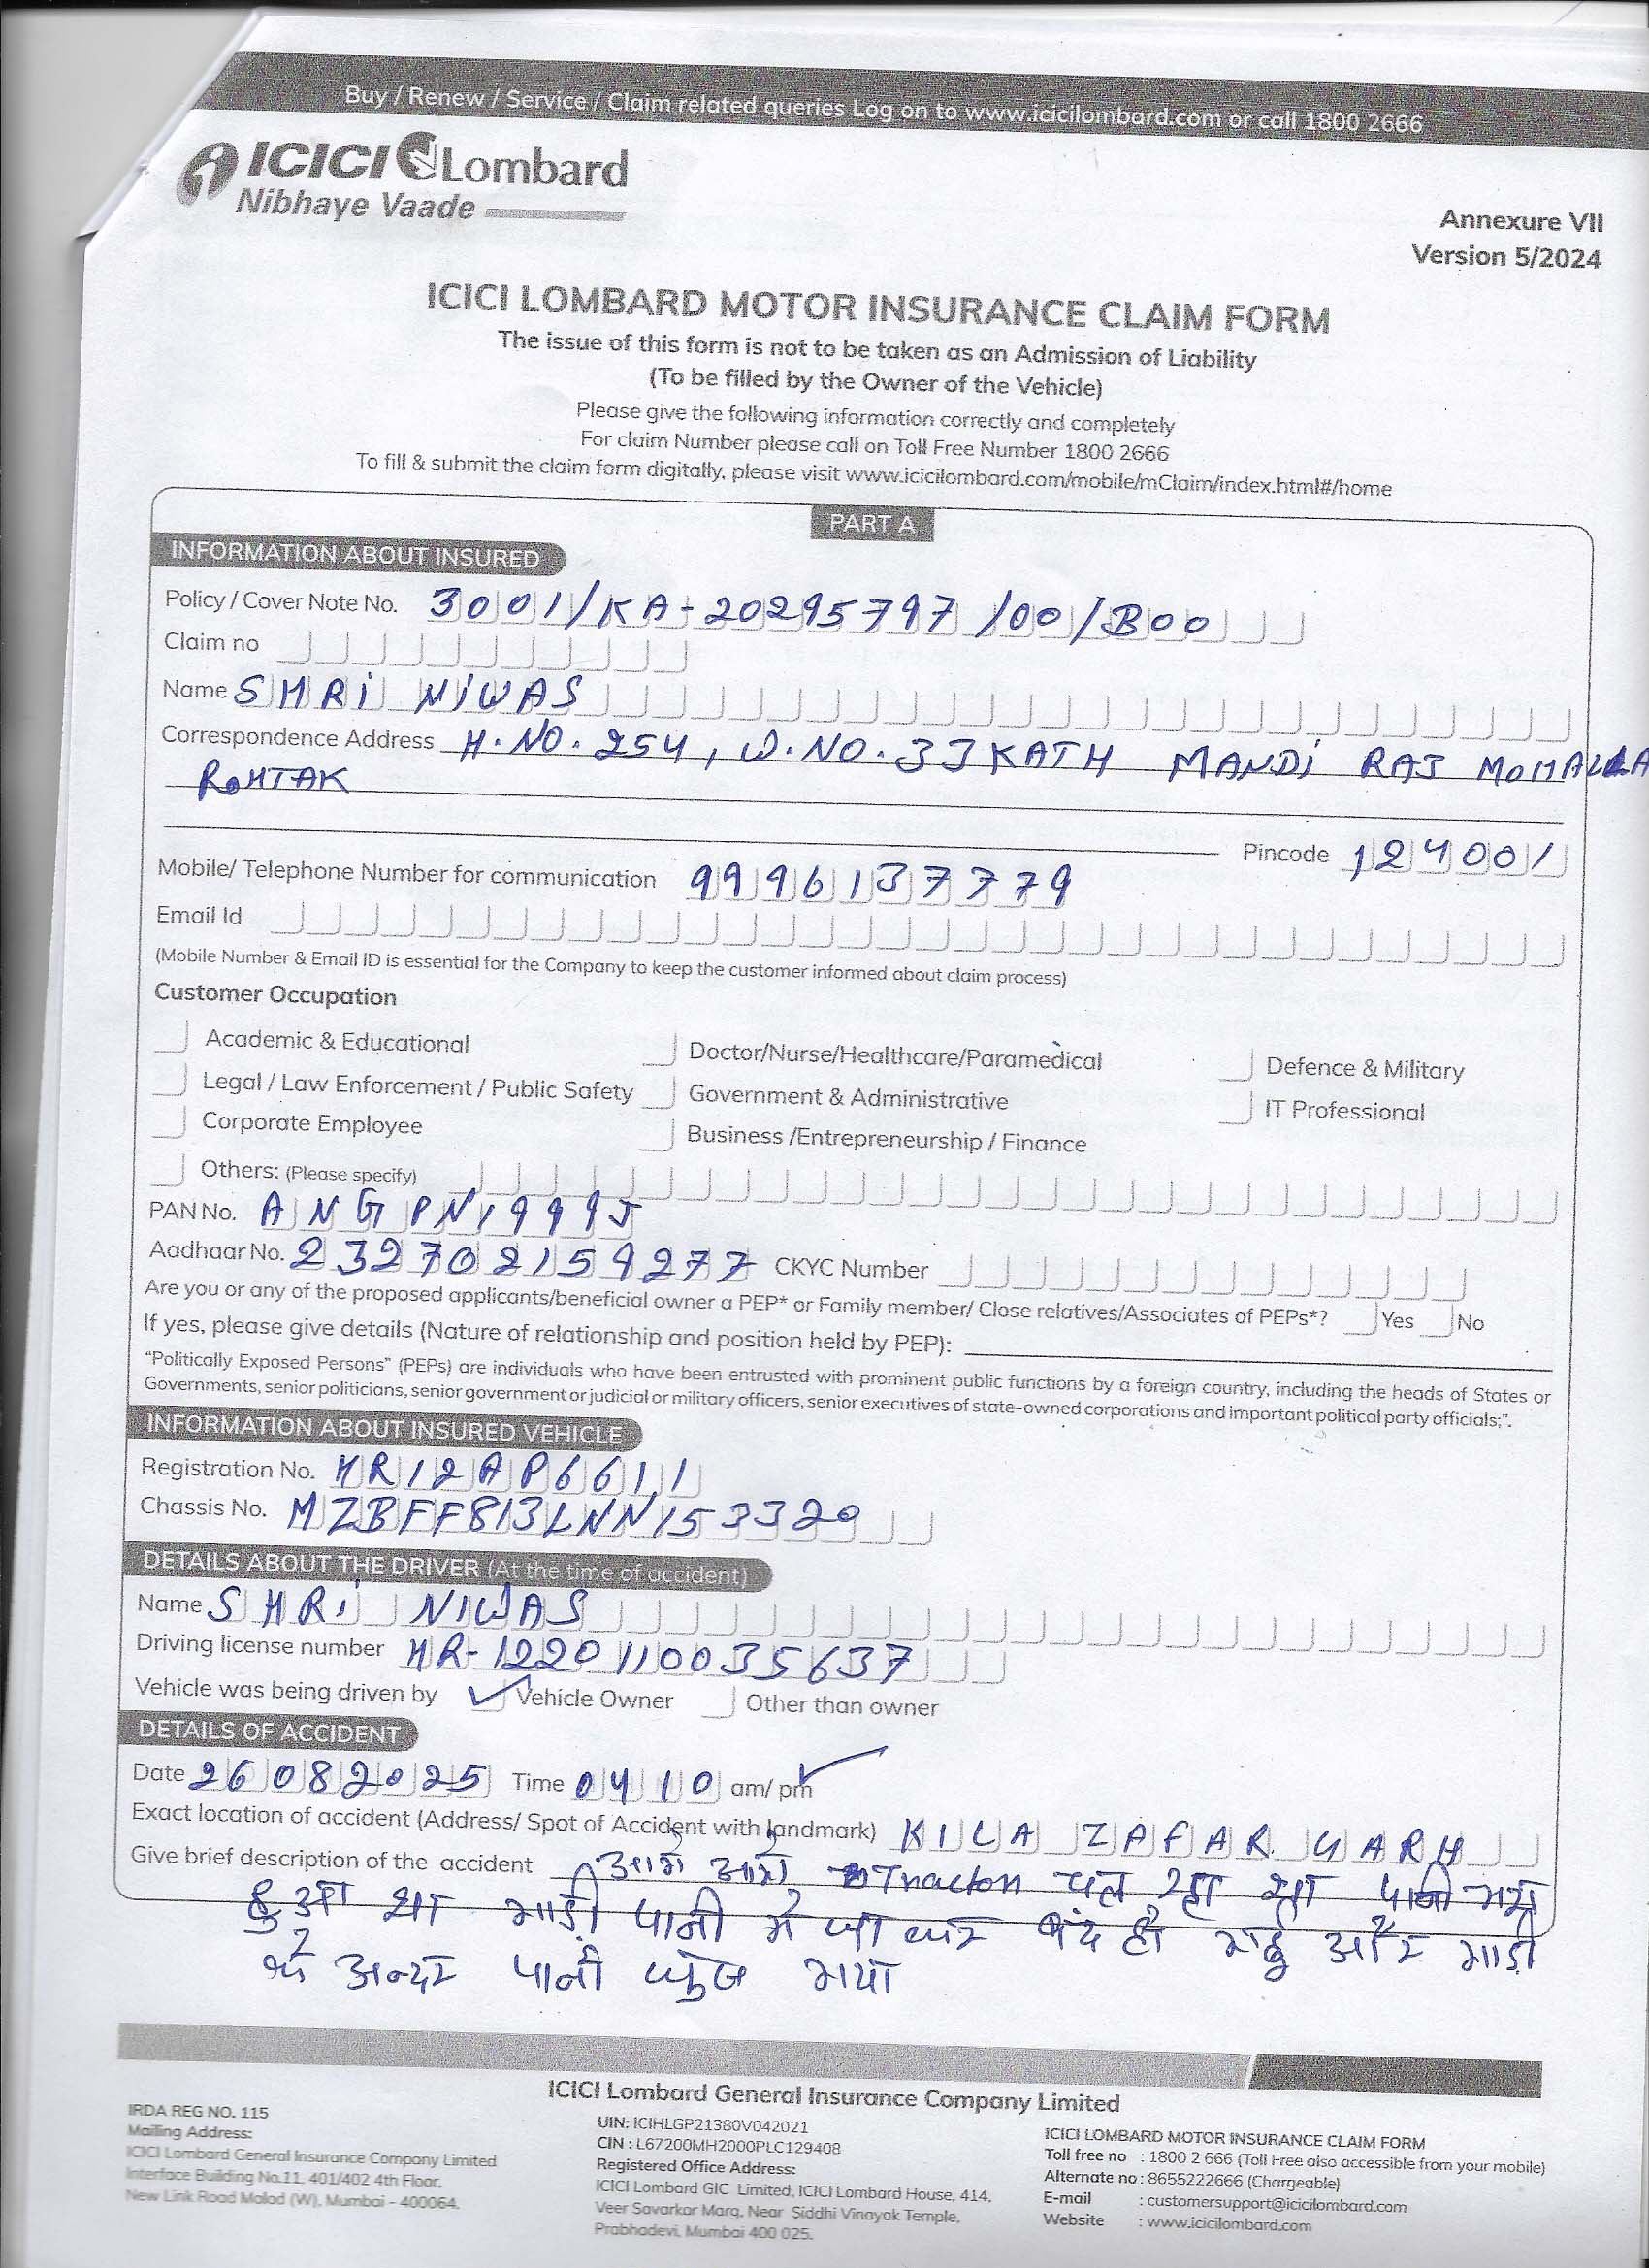 Buy / Renew / Service / Claim related queries Log on to www.icicilombard.com or call 1800 2666
ICICI Lombard
Nibhaye Vaade
Annexure VII
Version 5/2024
ICICI LOMBARD MOTOR INSURANCE CLAIM FORM
The issue of this form is not to be taken as an Admission of Liability
(To be filled by the Owner of the Vehicle)
Please give the following information correctly and completely
For claim Number please call on Toll Free Number 1800 2666
To fill & submit the claim form digitally, please visit www.icicilombard.com/mobile/mClaim/index.html#/home
PART A
INFORMATION ABOUT INSURED
Policy / Cover Note No. 3001/KA-20295797/00/B00
Claim no
Name SHRi NiWAS
Correspondence Address H.NO.254, W.NO.33 KATH MANDi RAJ MOHALLA
ROHTAK
Pincode 124001
Mobile/ Telephone Number for communication 9996137779
Email Id
(Mobile Number & Email ID is essential for the Company to keep the customer informed about claim process)
Customer Occupation
Academic & Educational Doctor/Nurse/Healthcare/Paramedical Defence & Military
Legal / Law Enforcement / Public Safety Government & Administrative IT Professional
Corporate Employee Business /Entrepreneurship / Finance
Others: (Please specify)
PAN No. ANGPN1999J
Aadhaar No. 232702159277 CKYC Number
Are you or any of the proposed applicants/beneficial owner a PEP* or Family member/ Close relatives/Associates of PEPs*? Yes No
If yes, please give details (Nature of relationship and position held by PEP):
"Politically Exposed Persons" (PEPs) are individuals who have been entrusted with prominent public functions by a foreign country, including the heads of States or
Governments, senior politicians, senior government or judicial or military officers, senior executives of state-owned corporations and important political party officials;".
INFORMATION ABOUT INSURED VEHICLE
Registration No. HR12AP6611
Chassis No. MZBFF813LNN153320
DETAILS ABOUT THE DRIVER (At the time of accident)
Name SHRi NIWAS
Driving license number HR-1220110035637
Vehicle was being driven by ✓ Vehicle Owner Other than owner
DETAILS OF ACCIDENT
Date 26082025 Time 0410 am/ pm ✓
Exact location of accident (Address/ Spot of Accident with landmark) KILA ZAFAR GARH
Give brief description of the accident आगे आगे Tractor चल रहा था पानी भरा
हुआ था गाड़ी पानी में जा कर बंद हो गई और गाड़ी
के अन्दर पानी गया
ICICI Lombard General Insurance Company Limited
IRDA REG NO. 115
Mailing Address:
ICICI Lombard General Insurance Company Limited
Interface Building No.11, 401/402 4th Floor,
New Link Road Malad (W), Mumbai - 400064.
UIN: ICIHLGP21380V042021
CIN : L67200MH2000PLC129408
Registered Office Address:
ICICI Lombard GIC Limited, ICICI Lombard House, 414,
Veer Savarkar Marg, Near Siddhi Vinayak Temple,
Prabhadevi, Mumbai 400 025.
ICICI LOMBARD MOTOR INSURANCE CLAIM FORM
Toll free no : 1800 2 666 (Toll Free also accessible from your mobile)
Alternate no : 8655222666 (Chargeable)
E-mail : customersupport@icicilombard.com
Website : www.icicilombard.com